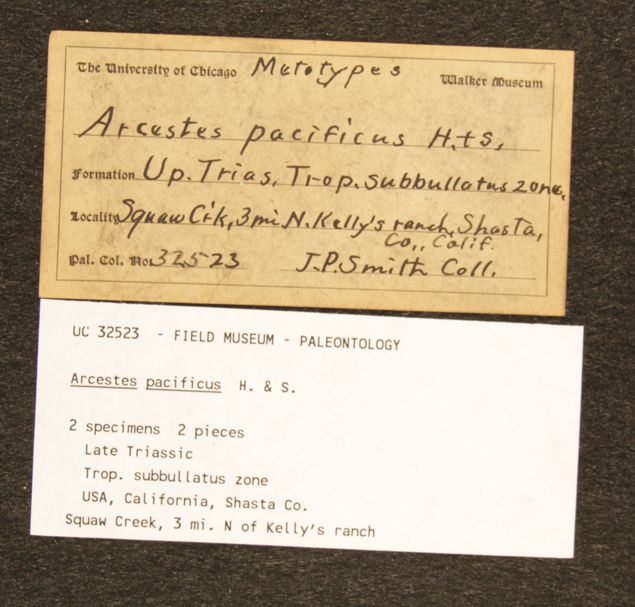 The University of Chicago Metotypes Walker Museum
Arcestes pacificus H.+S.
Formation Up. Trias, Trop. subbullatus zone.
Locality Squaw Cr'k, 3 mi. N. Kelly's ranch, Shasta,
Co., Calif.
Pal. Col. No. 32523 J.P. Smith Coll.
UC 32523 - FIELD MUSEUM - PALEONTOLOGY
Arcestes pacificus H. & S.
2 specimens 2 pieces
Late Triassic
Trop. subbullatus zone
USA, California, Shasta Co.
Squaw Creek, 3 mi. N of Kelly's ranch